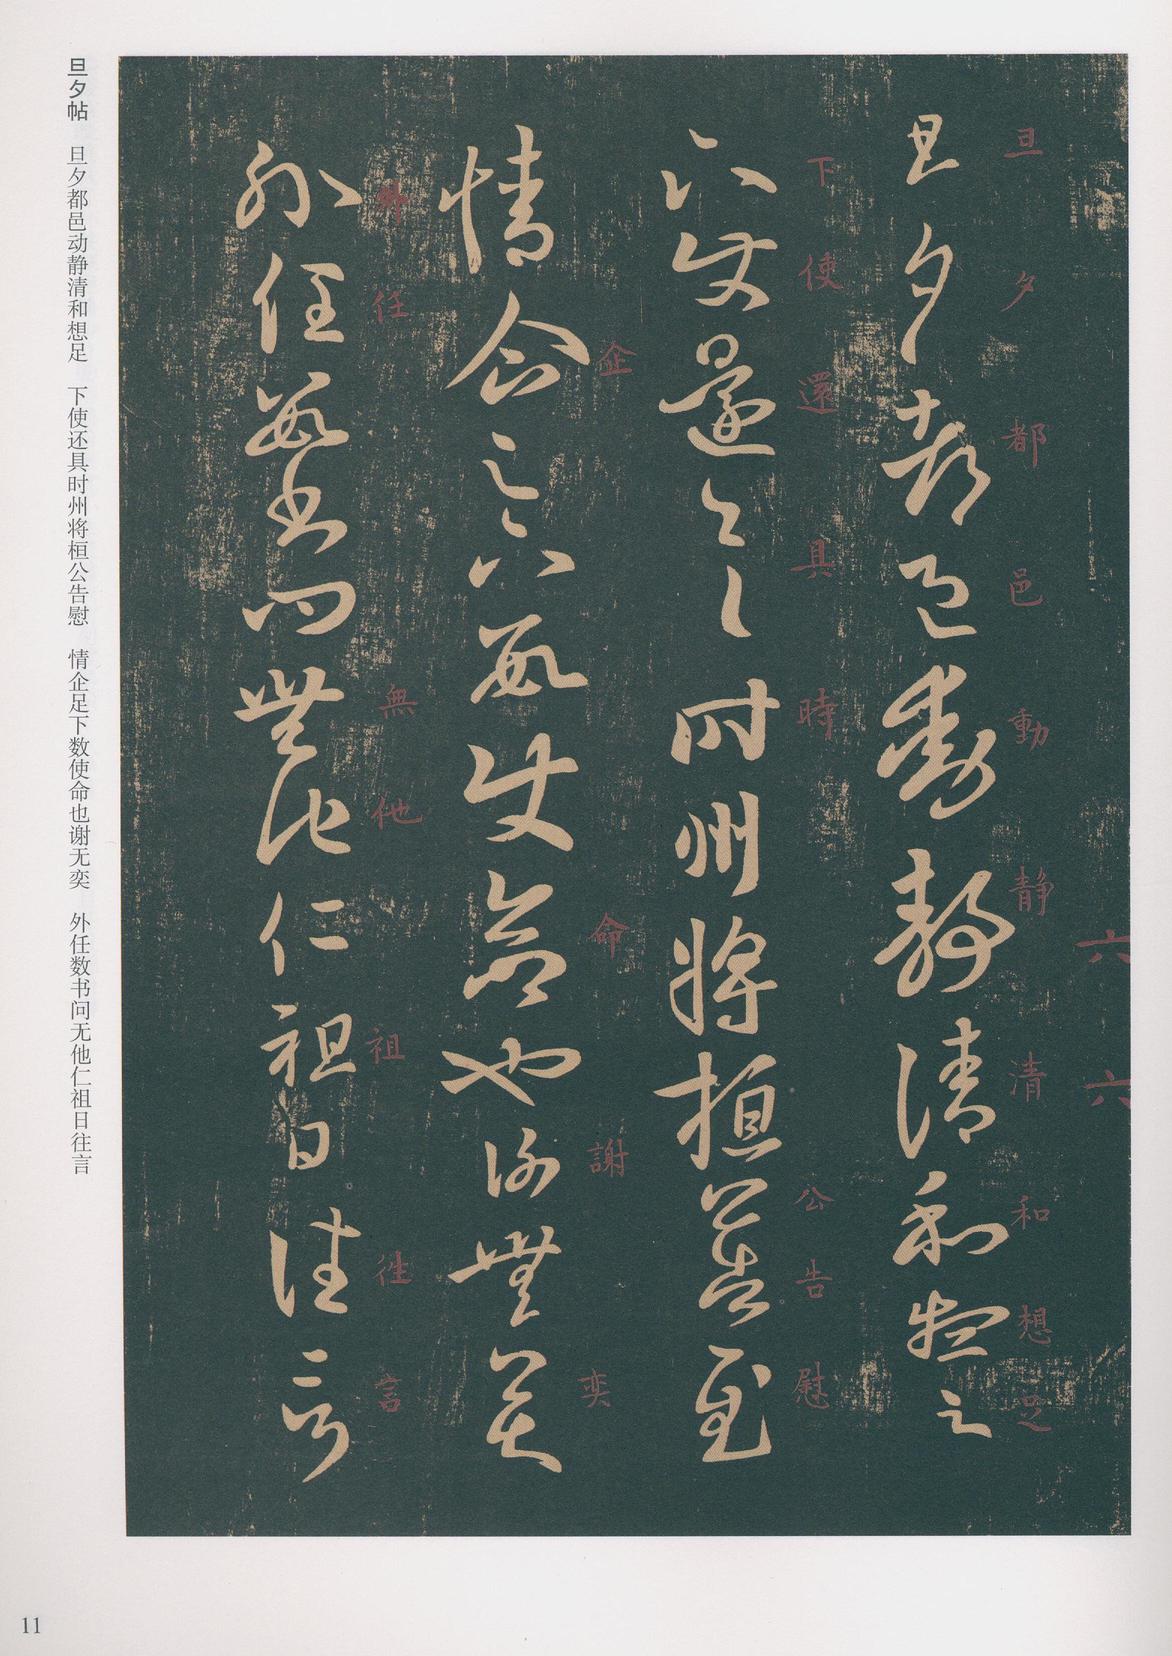 旦夕都邑動靜清和想足
下使還具時州將桓公告慰
情企足下數使命也謝無奕
外任數書問無他仁祖日往言
旦 夕 都 邑 動 静 清 和 想 足
六 六
下 使 還 具 時 公 告 慰
企 命 謝 奕
外 任 無 他 祖 往 言
旦夕帖 旦夕都邑动静清和想足 下使还具时州将桓公告慰 情企足下数使命也谢无奕 外任数书问无他仁祖日往言
11